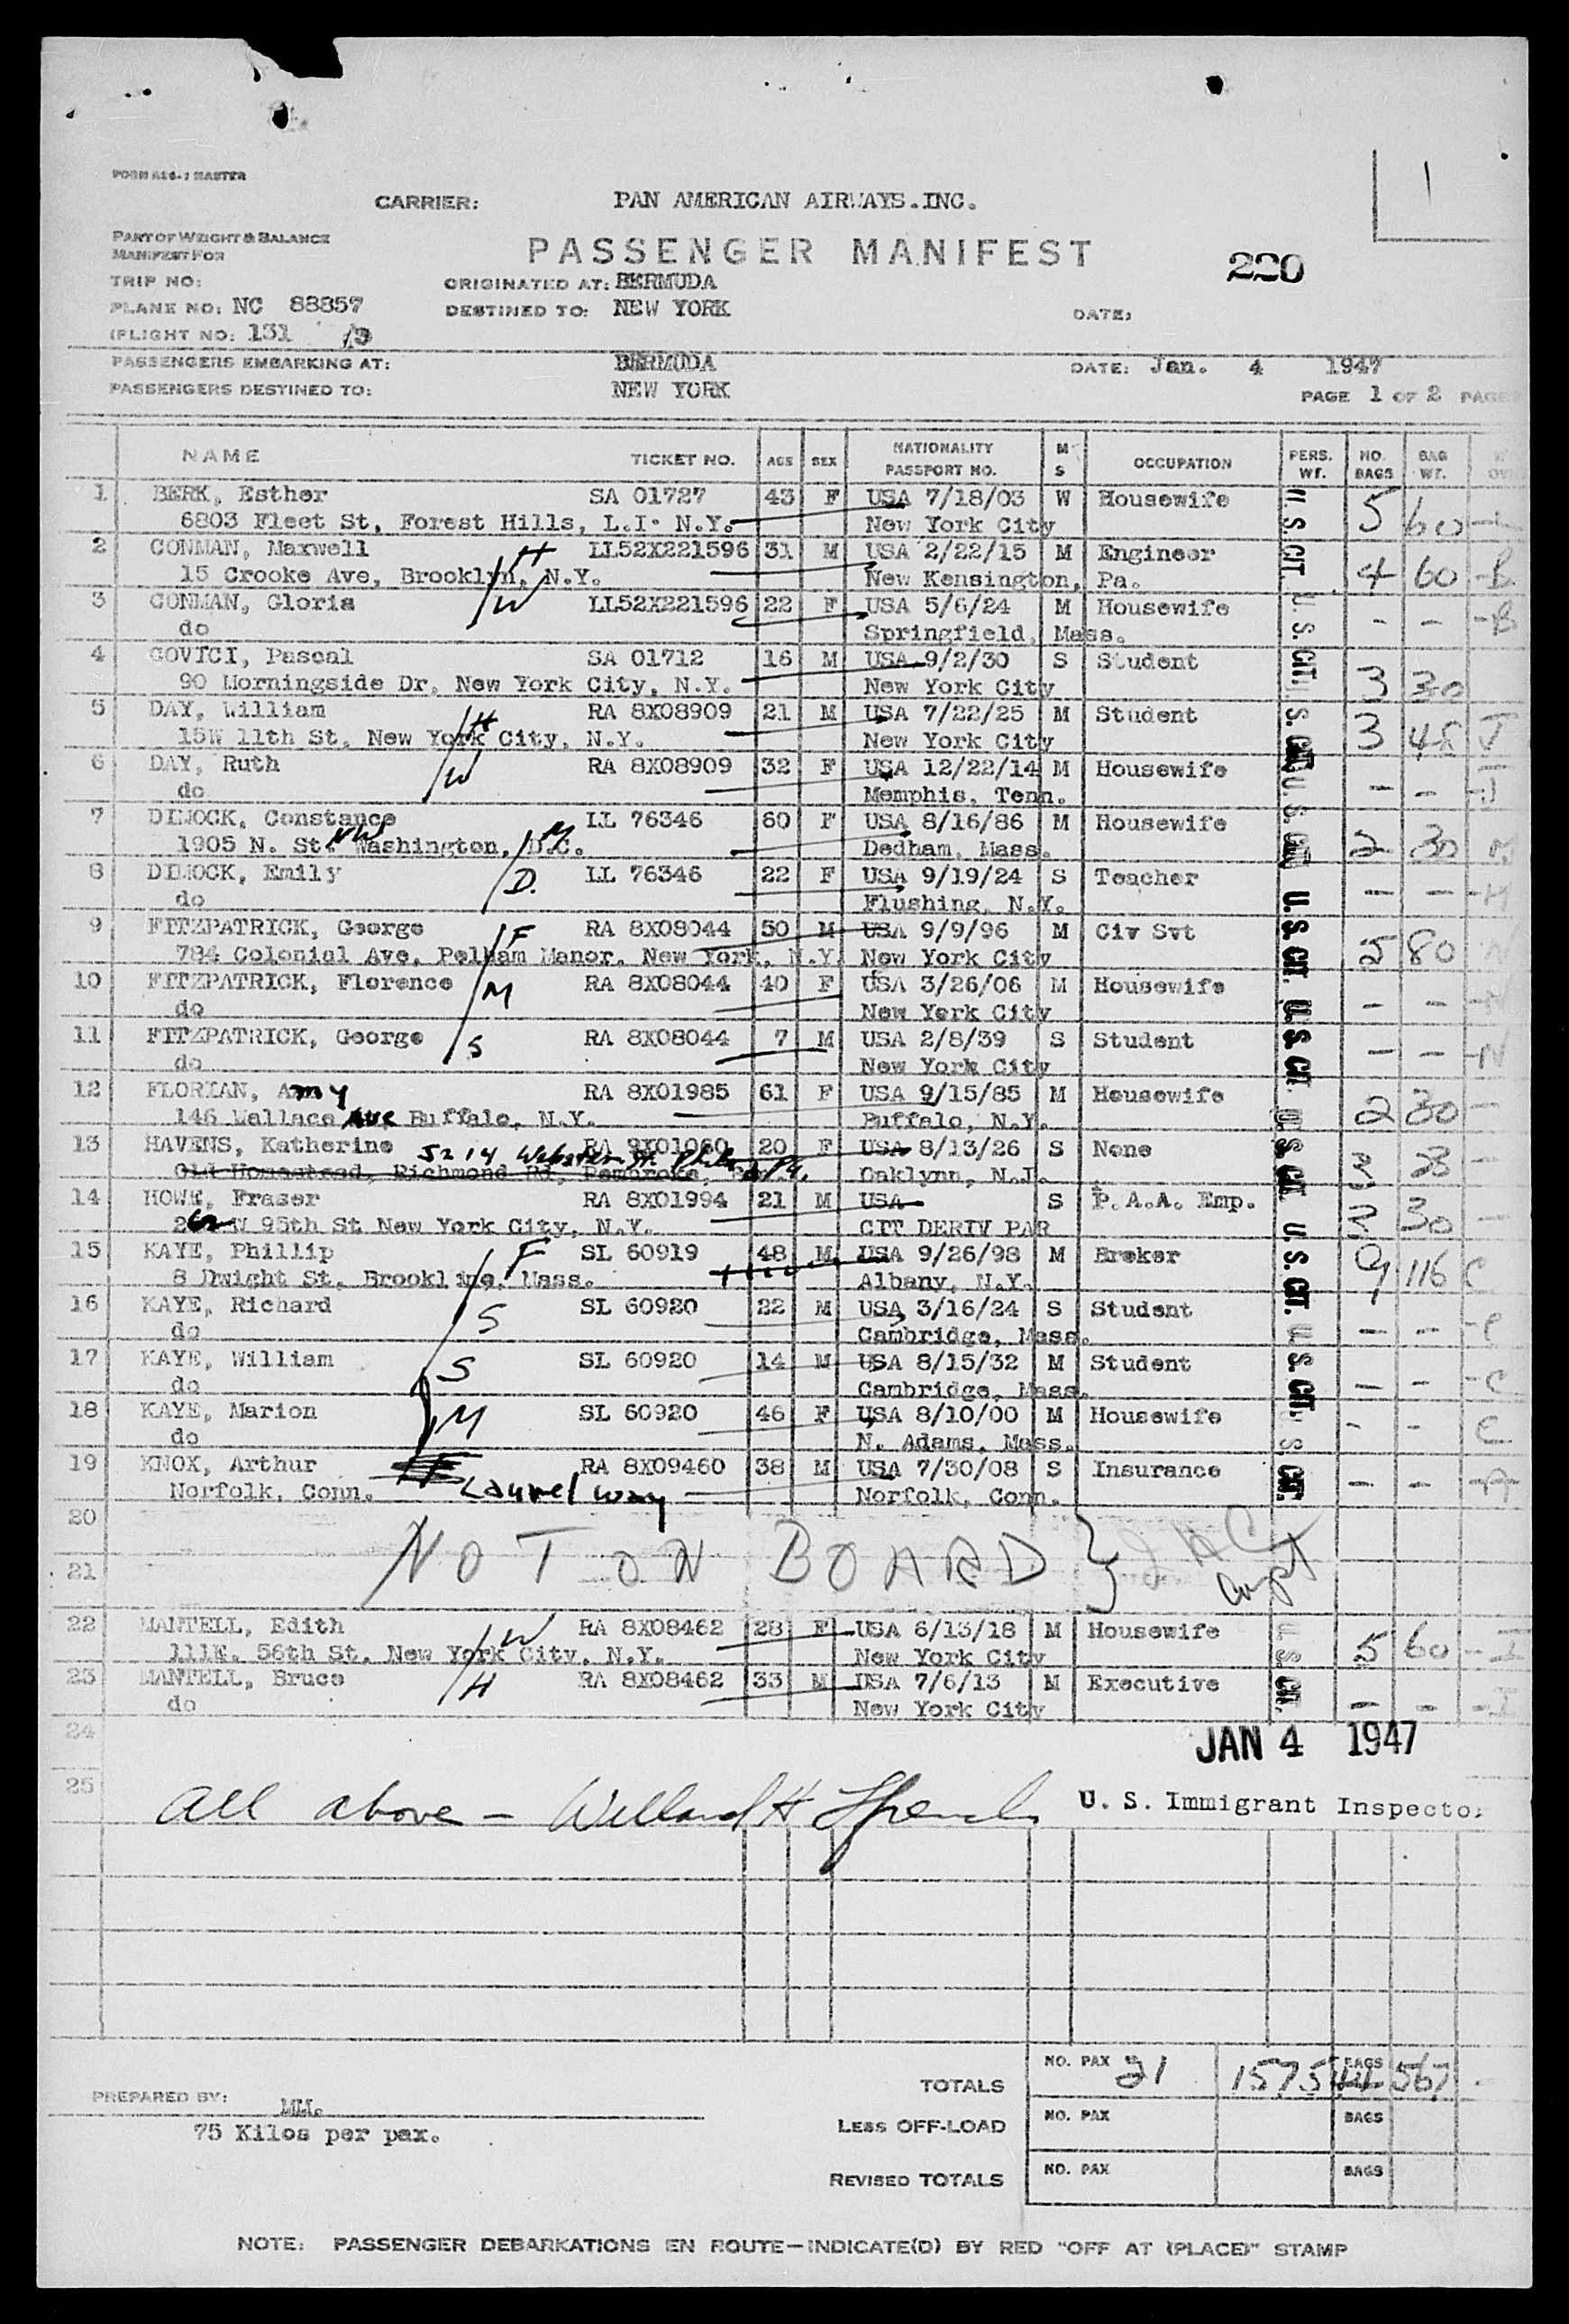 FORM A26-1 MASTER
CARRIER: PAN AMERICAN AIRWAYS.INC.
PART OF WEIGHT & BALANCE
MANIFEST FOR
PASSENGER MANIFEST
220
TRIP NO:
ORIGINATED AT: BERMUDA
PLANE NO: NC 88857
DESTINED TO: NEW YORK
DATE:
FLIGHT NO: 131
PASSENGERS EMBARKING AT: BERMUDA DATE: Jan. 4 1947
PASSENGERS DESTINED TO: NEW YORK
PAGE 1 OF 2 PAGE
NAME TICKET NO. AGE SEX NATIONALITY PASSPORT NO. M S OCCUPATION PERS. WT. NO. BAGS BAG WT.
1 BERK, Esther SA 01727 43 F USA 7/18/03 W Housewife U. S. CIT. 5 60 -
6803 Fleet St, Forest Hills, L.I. N.Y. New York City
2 CONMAN, Maxwell H LL52X221596 31 M USA 2/22/15 M Engineer 4 60 -B
15 Crooke Ave, Brooklyn, N.Y. New Kensington, Pa.
3 CONMAN, Gloria W LL52X221596 22 F USA 5/6/24 M Housewife U. S. CIT. - - -B
do Springfield, Mass.
4 COVICI, Pascal SA 01712 16 M USA 9/2/30 S Student 3 30
90 Morningside Dr, New York City, N.Y. New York City
5 DAY, William H RA 8X08909 21 M USA 7/22/25 M Student 3 48 J
15W 11th St, New York City, N.Y. New York City
6 DAY, Ruth W RA 8X08909 32 F USA 12/22/14 M Housewife - - -J
do Memphis, Tenn.
7 DIMOCK, Constance M LL 76346 60 F USA 8/16/86 M Housewife 2 30 M
1905 N. St. NW Washington, D.C. Dedham, Mass.
8 DIMOCK, Emily D. LL 76346 22 F USA 9/19/24 S Teacher U.S. CIT. - - -M
do Flushing, N.Y.
9 FITZPATRICK, George F RA 8X08044 50 M USA 9/9/96 M Civ Svt 5 80 N
784 Colonial Ave, Pelham Manor, New York, N.Y. New York City
10 FITZPATRICK, Florence M RA 8X08044 40 F USA 3/26/06 M Housewife U.S. CIT. - - -N
do New York City
11 FITZPATRICK, George S RA 8X08044 7 M USA 2/8/39 S Student - - -N
do New York City
12 FLORIAN, Amy RA 8X01985 61 F USA 9/15/85 M Housewife 2 30 -
146 Wallace Ave Buffalo, N.Y. Buffalo, N.Y.
13 HAVENS, Katherine 5214 Webster St Phila Pa. RA 9X01060 20 F USA 8/13/26 S None U. S. CIT. 3 23 -
Old Homestead, Richmond Rd, Pembroke, Oaklynn, N.J.
14 HOWE, Fraser RA 8X01994 21 M USA S P.A.A. Emp. 2 30 -
W 95th St New York City, N.Y. CIT DERIV PAR
15 KAYE, Phillip F SL 60919 48 M USA 9/26/98 M Broker U.S. CIT. 9 116 C
8 Dwight St, Brookline, Mass. Albany, N.Y.
16 KAYE, Richard S SL 60920 22 M USA 3/16/24 S Student - - -C
do Cambridge, Mass.
17 KAYE, William S SL 60920 14 M USA 8/15/32 M Student U. S. CIT. - - -C
do Cambridge, Mass.
18 KAYE, Marion M SL 60920 46 F USA 8/10/00 M Housewife - - C
do N. Adams, Mass.
19 KNOX, Arthur RA 8X09460 38 M USA 7/30/08 S Insurance U. S. CIT. - - -A-
Norfolk, Conn. Laurel Way Norfolk, Conn.
20
NOT ON BOARD
21
22 MANTELL, Edith W RA 8X08462 28 F USA 6/13/18 M Housewife U. S. CIT. 5 60 -I
111E. 56th St, New York City, N.Y. New York City
23 MANTELL, Bruce H RA 8X08462 33 M USA 7/6/13 M Executive - - -I
do New York City
24
JAN 4 1947
25
All above - Willard H
U. S. Immigrant Inspector
TOTALS NO. PAX 21 1575 BAGS 44 567
PREPARED BY: MM.
75 Kilos per pax.
LESS OFF-LOAD NO. PAX BAGS
REVISED TOTALS NO. PAX BAGS
NOTE: PASSENGER DEBARKATIONS EN ROUTE—INDICATE(D) BY RED "OFF AT (PLACE)" STAMP